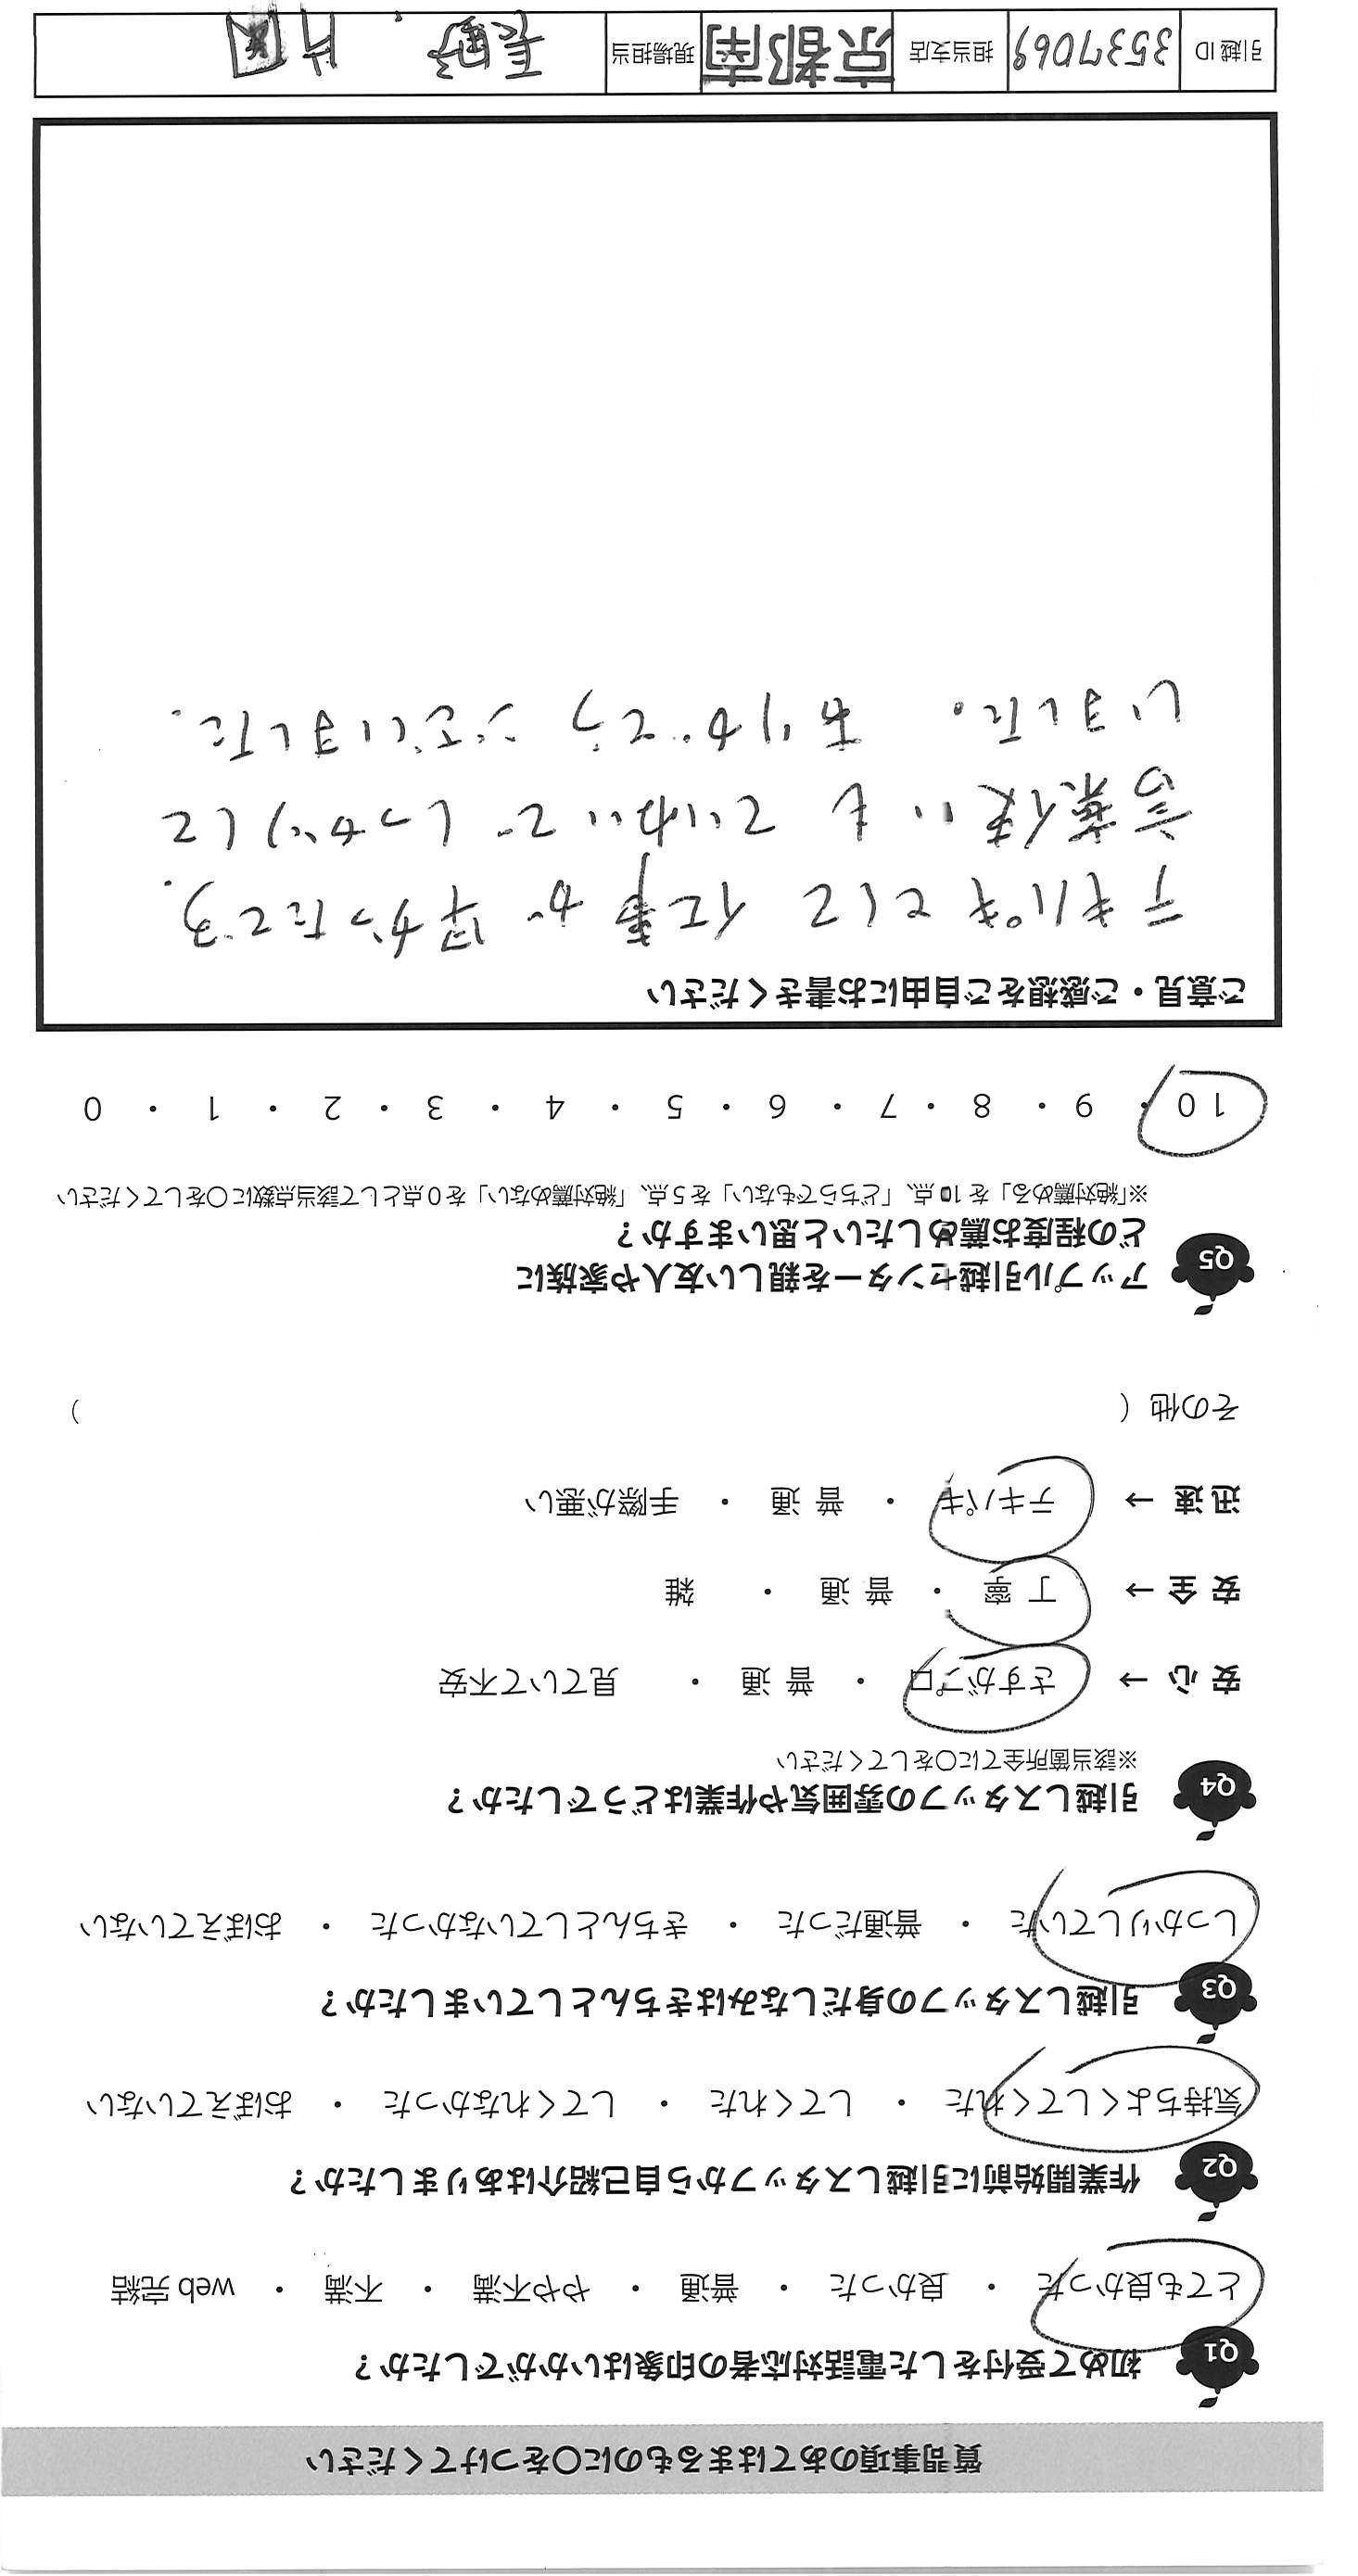 質問事項のあてはまるものに〇をつけてください
Q1 初めて受付をした電話対応者の印象はいかがでしたか？
とても良かった ・ 良かった ・ 普通 ・ やや不満 ・ 不満 ・ web 完結
Q2 作業開始前に引越しスタッフから自己紹介はありましたか？
気持ちよくしてくれた ・ してくれた ・ してくれなかった ・ おぼえていない
Q3 引越しスタッフの身だしなみはきちんとしていましたか？
しっかりしていた ・ 普通だった ・ きちんとしていなかった ・ おぼえていない
Q4 引越しスタッフの雰囲気や作業はどうでしたか？
※該当箇所全てに〇をしてください
安 心 → さすがプロ ・ 普 通 ・ 見ていて不安
安 全 → 丁 寧 ・ 普 通 ・ 雑
迅 速 → テキパキ ・ 普 通 ・ 手際が悪い
その他（ ）
Q5 アップル引越センターを親しい友人や家族に
どの程度お薦めしたいと思いますか？
※「絶対薦める」を 10 点、「どちらでもない」を 5 点、「絶対薦めない」を 0 点として該当点数に〇をしてください
10 ・ 9 ・ 8 ・ 7 ・ 6 ・ 5 ・ 4 ・ 3 ・ 2 ・ 1 ・ 0
ご意見・ご感想をご自由にお書きください
テキパキとしてて 仕事が早かったです。
言葉使いも ていねいで しっかりして
いました。 ありがとうございました。
引越 ID 3537069 担当支店 京都南 現場担当 長野、片岡